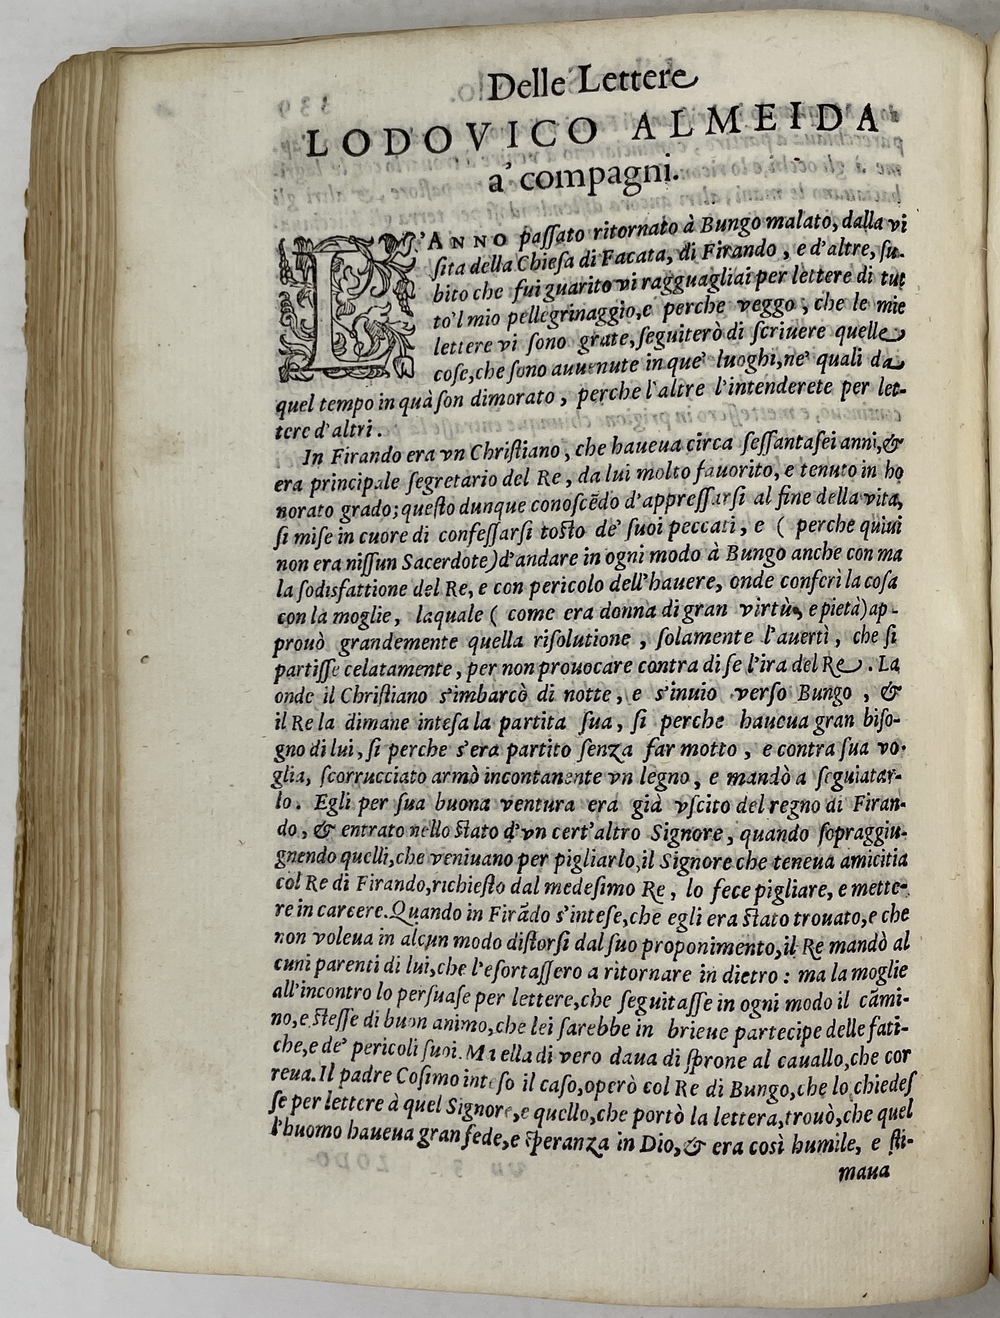 Delle Lettere
LODOVICO ALMEIDA
a' compagni.
L'ANNO paſſato ritornato à Bungo malato, dalla vi
ſita della Chieſa di Facata, di Firando, e d'altre, ſu-
bito che fui guarito vi ragguagliai per lettere di tut
to'l mio pellegrinaggio, e perche veggo, che le mie
lettere vi ſono grate, ſeguiterò di ſcriuere quelle
coſe, che ſono auuenute in que' luoghi, ne' quali da
quel tempo in quà ſon dimorato, perche l'altre l'intenderete per let-
tere d'altri.
In Firando era vn Chriſtiano, che haueua circa ſeſſantaſei anni, &
era principale ſegretario del Re, da lui molto fauorito, e tenuto in ho
norato grado; queſto dunque conoſcẽdo d'appreſſarſi al fine della vita,
ſi miſe in cuore di confeſſarſi toſto de' ſuoi peccati, e ( perche quiui
non era niſſun Sacerdote) d'andare in ogni modo à Bungo anche con ma
la ſodisfattione del Re, e con pericolo dell'hauere, onde conferì la coſa
con la moglie, laquale ( come era donna di gran virtù, e pietà) ap-
prouò grandemente quella riſolutione, ſolamente l'auertì, che ſi
partiſſe celatamente, per non prouocare contra di ſe l'ira del Re. La
onde il Chriſtiano s'imbarcò di notte, e s'inuio verſo Bungo, &
il Re la dimane inteſa la partita ſua, ſi perche haueua gran biſo-
gno di lui, ſi perche s'era partito ſenza far motto, e contra ſua vo-
glia, ſcorrucciato armò incontanente vn legno, e mandò a ſeguiatar-
lo. Egli per ſua buona ventura era già vſcito del regno di Firan-
do, & entrato nello ſtato d'vn cert'altro Signore, quando ſopraggiu-
gnendo quelli, che veniuano per pigliarlo, il Signore che teneua amicitia
col Re di Firando, richieſto dal medeſimo Re, lo fece pigliare, e mette-
re in carcere. Quando in Firãdo s'inteſe, che egli era ſtato trouato, e che
non voleua in alcun modo diſtorſi dal ſuo proponimento, il Re mandò al
cuni parenti di lui, che l'eſortaſſero a ritornare in dietro: ma la moglie
all'incontro lo perſuaſe per lettere, che ſeguitaſſe in ogni modo il cãmi-
no, e ſteſſe di buon animo, che lei ſarebbe in brieue partecipe delle fati-
che, e de' pericoli ſuoi. Ma ella di vero daua di ſprone al cauallo, che cor
reua. Il padre Coſimo inteſo il caſo, operò col Re di Bungo, che lo chiedeſ
ſe per lettere à quel Signore, e quello, che portò la lettera, trouò, che quel
l'huomo haueua gran fede, e ſperanza in Dio, & era così humile, e ſti-
maua